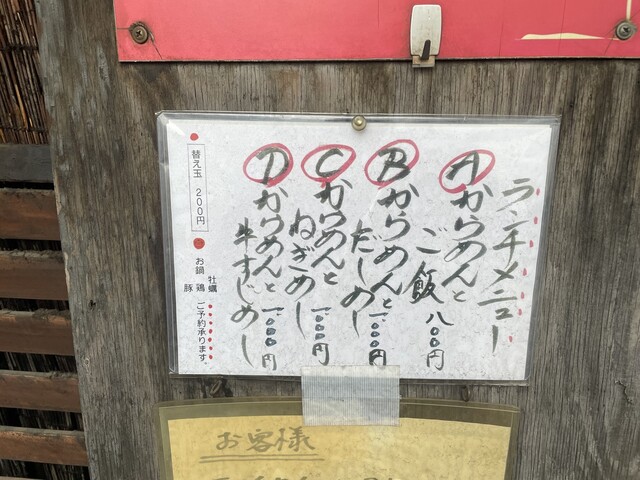 ランチメニュー
A からめんと
ご飯 八〇〇円
B からめんと
だしめし 一、〇〇〇円
C からめんと
ねぎめし 一、〇〇〇円
D からめんと
牛すじめし 一、〇〇〇円
替え玉 200円
お鍋 牡蠣 鶏 豚 ご予約承ります。
お客様